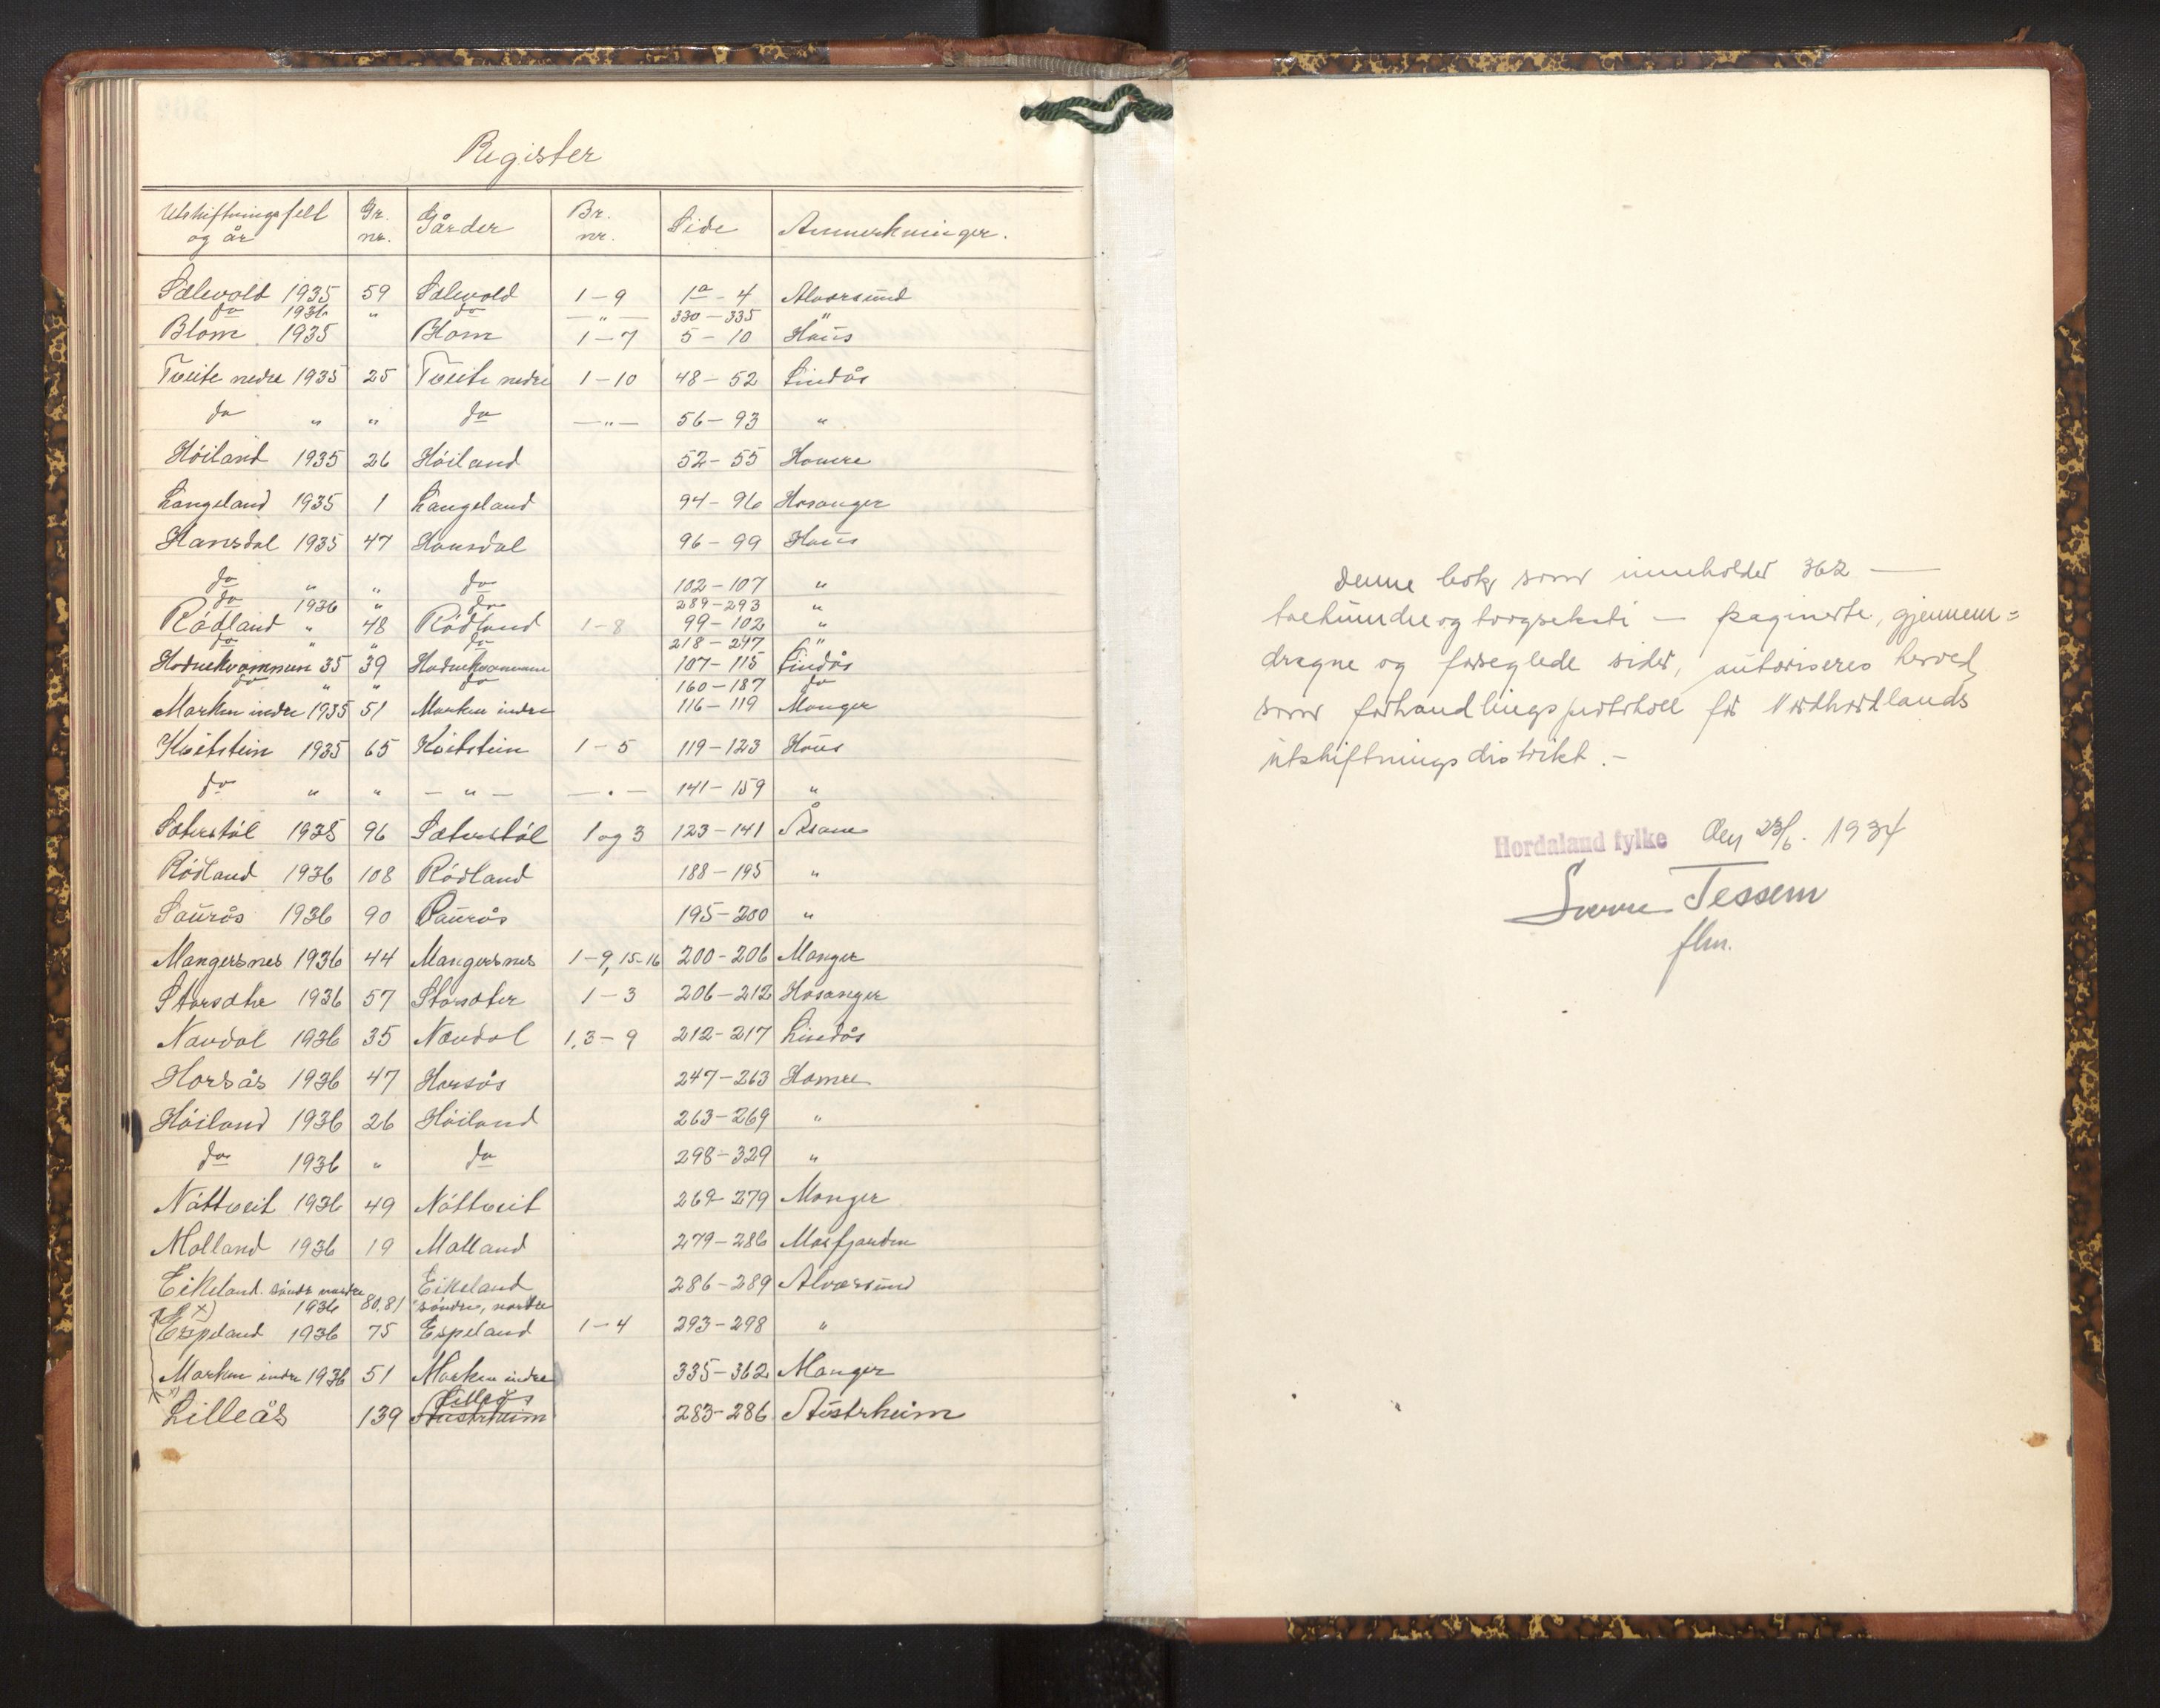 Register
Utskiftningsfelt og år | Gr. nr. | Gårder | Br. nr. | Side | Anmerkninger.
Sælevold 1935 | 59 | Sælevold | 1-9 | 1a - 4 | Alversund
do 1936 | " | do | —"— | 330-335 | "
Blom 1935 | | Blom | 1-7 | 5-10 | Haus
Tveite nedre 1935 | 25 | Tveite nedre | 1-10 | 48-52 | Lindås
do " | " | do | —"— | 56-93 | "
Höiland 1935 | 26 | Höiland | | 52-55 | Hamre
Langeland 1935 | 1 | Langeland | | 94-96 | Hosanger
Hansdal 1935 | 47 | Hansdal | | 96-99 | Haus
do " | " | do | | 102-107 | "
do 1936 | " | do | | 289-293 | "
Rödland " | 48 | Rödland | 1-8 | 99-102 | "
do " | " | do | | 218-247 | "
Hodnekvammen 35 | 39 | Hodnekvammen | | 107-115 | Lindås
do " | " | do | | 160-187 | do
Marken indre 1935 | 51 | Marken indre | | 116-119 | Manger
Kvitstein 1935 | 65 | Kvitstein | 1-5 | 119-123 | Haus
do " | " | — " — | — " — | 141-159 | "
Sæterstöl 1935 | 96 | Sæterstöl | 1 og 3 | 123-141 | Åsane
Rödland 1936 | 108 | Rödland | | 188-195 | "
Saurås 1936 | 90 | Saurås | | 195-200 | "
Mangersnes 1936 | 44 | Mangersnes | 1-9, 15-16 | 200-206 | Manger
Storsæter 1936 | 57 | Storsæter | 1-3 | 206-212 | Hosanger
Nævdal 1936 | 35 | Nævdal | 1, 3-9 | 212-217 | Lindås
Horsås 1936 | 47 | Horsås | | 247-263 | Hamre
Höiland 1936 | 26 | Höiland | | 263-269 | "
do 1936 | " | do | | 298-329 | "
Nöttveit 1936 | 49 | Nöttveit | | 269-279 | Manger
Molland 1936 | 19 | Molland | | 279-286 | Masfjorden
Eikeland söndre nordre 1936 | 80, 81 | Eikeland söndre, nordre | | 286-289 | Alversund
x)
Espeland 1936 | 75 | Espeland | 1-4 | 293-298 | "
Marken indre 1936 | 51 | Marken indre | | 335-362 | Manger
x)
Lilleås | 139 | Austrheim Lilleås | | 283-286 | Austrheim
Denne bok som inneholder 362 —
trehundre og torgseksti — paginerte, gjennem=
dragne og forseglede sider, autoriseres herved
som forhandlingsprotokoll for Nordhordlands
utskiftningsdistrikt.-
Hordaland fylke den 23/6. 1934
Sverre Tessem
flm.